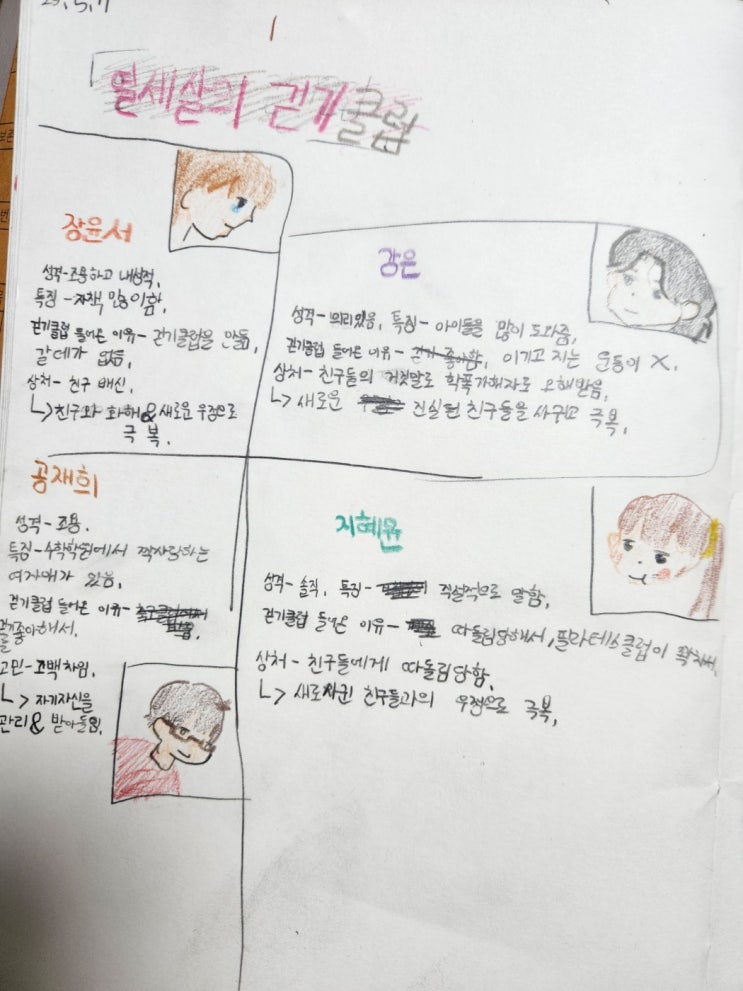 열세살의 걷기클럽
장윤서
성격-조용하고 내성적.
특징 - 자책 많이함.
걷기클럽 들어온 이유- 걷기클럽을 만듦,
갈데가 없음.
상처- 친구 배신.
↳친구와 화해&새로운 우정으로
극복.
강은
성격- 의리있음, 특징- 아이들을 많이 도와줌,
걷기클럽 들어온 이유- 걷기 좋아함, 이기고 지는 운동이 X.
상처- 친구들의 거짓말로 학폭가해자로 오해받음,
↳새로운 진실된 친구들을 사귀고 극복,
공재희
성격-조용.
특징-수학학원에서 짝사랑하는
여자애가 있음.
걷기클럽 들어온 이유-
걷기를 좋아해서.
고민-고백차임.
↳자기자신을
관리& 받아들임.
지혜윤
성격- 솔직, 특징- 직설적으로 말함,
걷기클럽 들어온 이유- 따돌림당해서, 필라테스클럽이 꽉차서.
상처- 친구들에게 따돌림당함.
↳새로사귄 친구들과의 우정으로 극복,